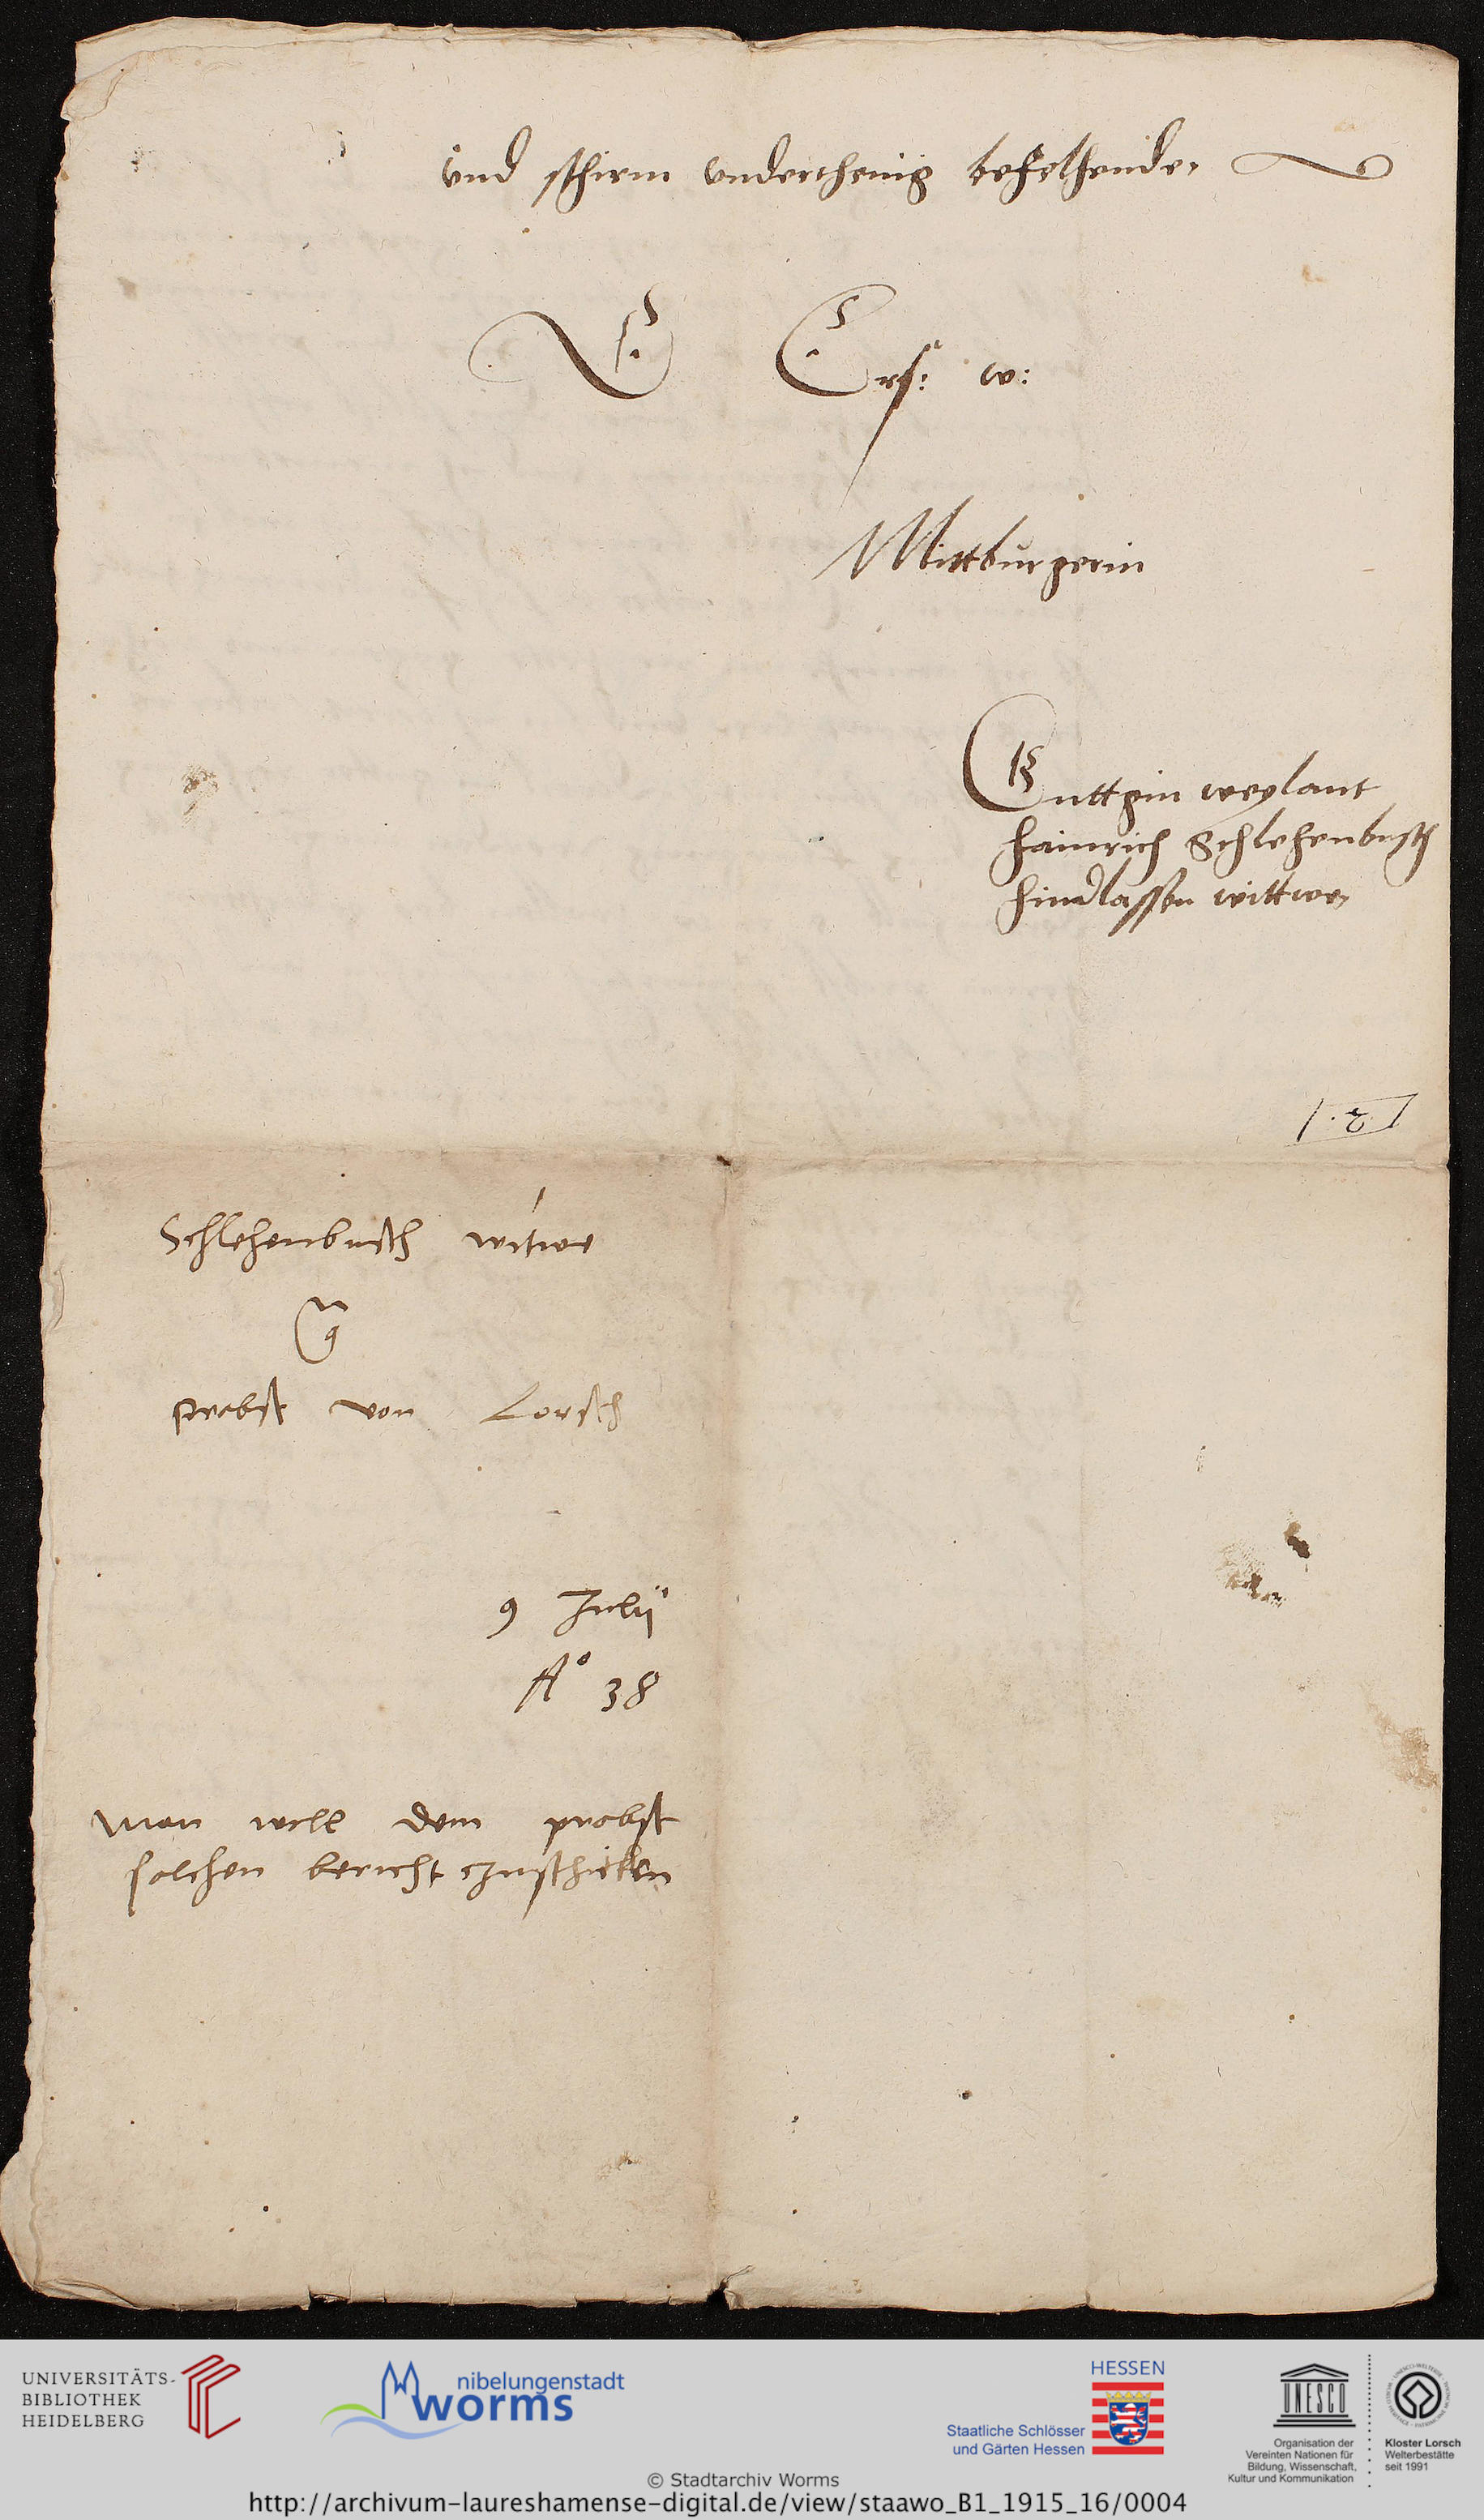 vnd schirm vnderthenig befelhende,
E Ers: w:
Mittburgerin
Guttgin weylant
hainrich Schlehenbusch
hind'lassen wittwe,
.2.
Schlehenbusch witwe
probst von Lorsch
9 Julij
A° 38
man will dem probst
solchen bericht zuschicken
UNIVERSITÄTS-
BIBLIOTHEK
HEIDELBERG
nibelungenstadt
worms
HESSEN
Staatliche Schlösser
und Gärten Hessen
UNESCO
Organisation der
Vereinten Nationen für
Bildung, Wissenschaft,
Kultur und Kommunikation
Kloster Lorsch
Welterbestätte
seit 1991
© Stadtarchiv Worms
http://archivum-laureshamense-digital.de/view/staawo_B1_1915_16/0004